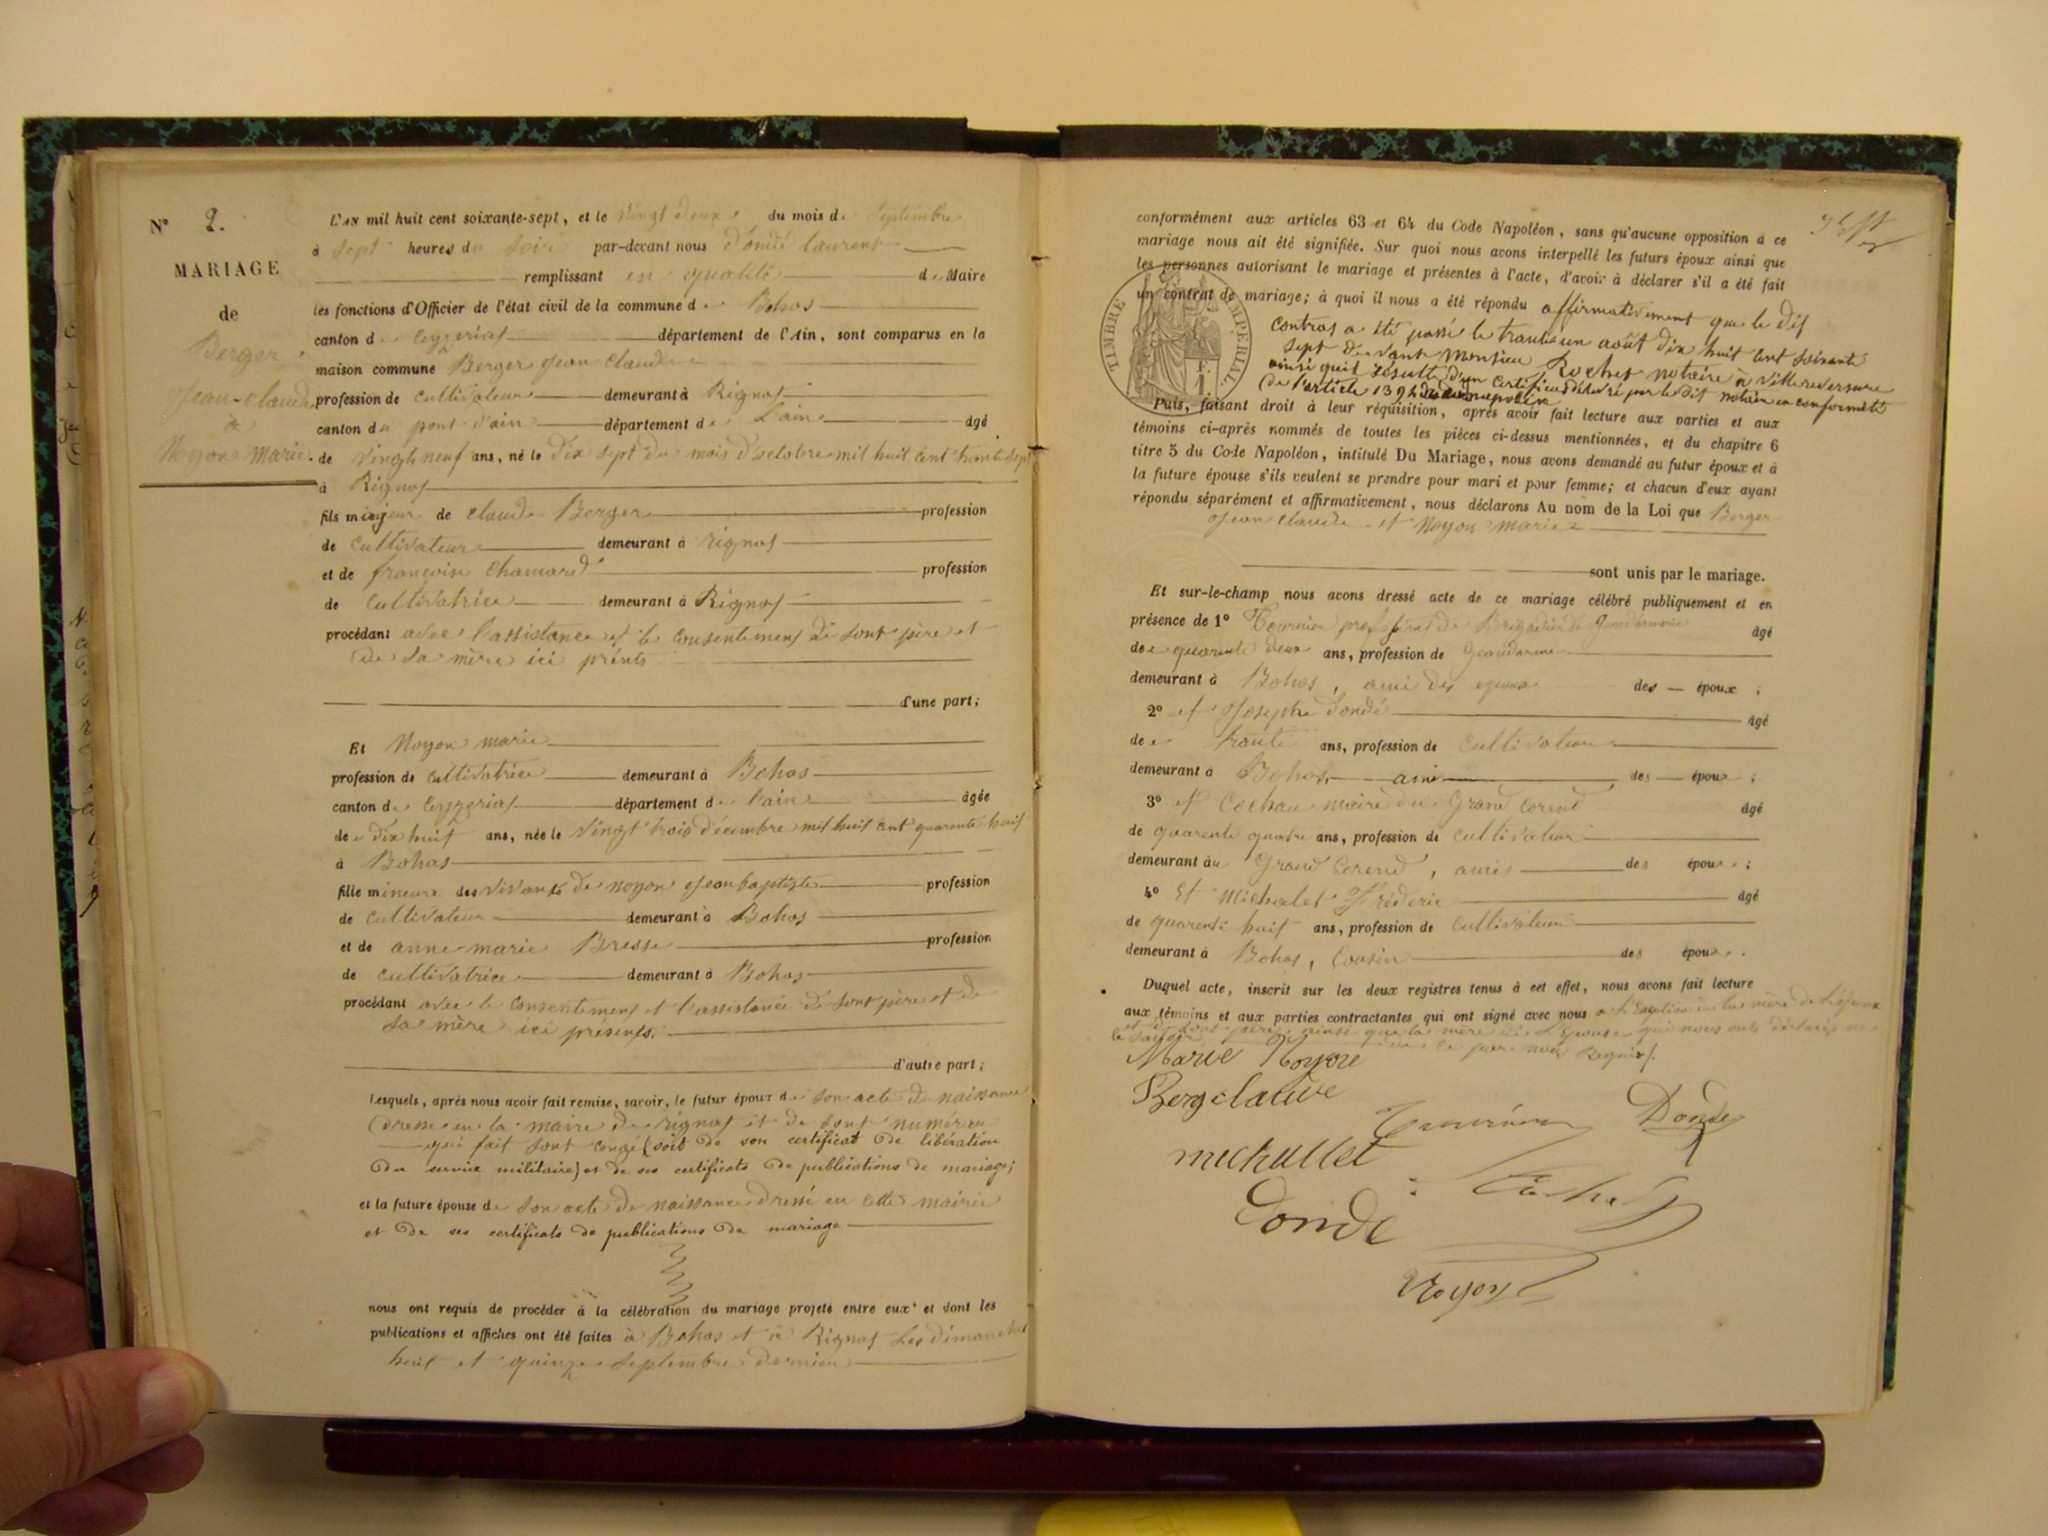 N° 2.
MARIAGE
de
Berger
Jean-claude
à
Noyon Marie.
L'AN mil huit cent soixante-sept, et le vingt deux du mois de Septembre
à sept heures du soir par-devant nous Dondé laurent
remplissant en qualité de Maire
les fonctions d'Officier de l'état civil de la commune de Bohas
canton de Ceyzeriat département de l'Ain, sont comparus en la
maison commune Berger Jean Claude
profession de cultivateur demeurant à Rignat
canton de pont d'ain département de L'ain âgé
de vingt neuf ans, né le dix sept du mois d'octobre mil huit cent trente sept
à Rignat
fils majeur de claude Berger profession
de cultivateur demeurant à rignat
et de françoise Chanard profession
de cultivatrice demeurant à Rignat
procédant avec l'assistance et le consentement de sont père et
de sa mère ici prénts
d'une part;
Et Noyon marie
profession de cultivatrice demeurant à Bohas
canton de Ceyzeriat département de l'ain âgée
de dix huit ans, née le vingt trois décembre mil huit cent quarente huit
à Bohas
fille mineure des vivants de noyon Jean baptiste profession
de cultivateur demeurant à Bohas
et de anne marie Bresse profession
de cultivatrice demeurant à Bohas
procédant avec le consentement et l'assistance de sont père et de
sa mère ici présents.
d'autre part;
Lesquels, après nous avoir fait remise, savoir, le futur époux de son acte de naissance
dresse en la mairie de rignat et de sont numéro
qui fait sont congé (soit de son certificat de libération
du service militaire) et de ses certificats de publications de mariage;
et la future épouse de son acte de naissance dressé en cette mairie
et de ses certificats de publications de mariage
nous ont requis de procéder à la célébration du mariage projeté entre eux et dont les
publications et affiches ont été faites à Bohas et à Rignat les dimanches
huit et quinze septembre dernier
conformément aux articles 63 et 64 du Code Napoléon, sans qu'aucune opposition à ce
mariage nous ait été signifiée. Sur quoi nous avons interpellé les futurs époux ainsi que
les personnes autorisant le mariage et présentes à l'acte, d'avoir à déclarer s'il a été fait
un contrat de mariage; à quoi il nous a été répondu affirmativement que le dit
TIMBRE IMPÉRIAL
contras a été passé le trante un août dix huit cent soixante
sept devant monsieu Rochet notaire à villereversure
ainsi quil résulte d'un certificat délivré par le dit notaire en conformité
de l'article 1394 du code napoléon
Puis, faisant droit à leur réquisition, après avoir fait lecture aux parties et aux
témoins ci-après nommés de toutes les pièces ci-dessus mentionnées, et du chapitre 6
titre 5 du Code Napoléon, intitulé Du Mariage, nous avons demandé au futur époux et à
la future épouse s'ils veulent se prendre pour mari et pour femme; et chacun d'eux ayant
répondu séparément et affirmativement, nous déclarons Au nom de la Loi que Berger
Jean claude et Noyon marie
sont unis par le mariage.
Et sur-le-champ nous avons dressé acte de ce mariage célébré publiquement et en
présence de 1° Tournier Brigadier de Gendarmerie âgé
de quarente deux ans, profession de Gendarme
demeurant à Bohas, ami des epoux des époux;
2° et Joseph Dondé âgé
de trante ans, profession de cultivateur
demeurant à Bohas ami des époux;
3° et Cochau maire du Grand Corend âgé
de quarente quatre ans, profession de cultivateur
demeurant au Grand Corend, amis des époux;
4° Et Michalet Fréderic âgé
de quarente huit ans, profession de cultivateur
demeurant à Bohas, cousin des époux.
Duquel acte, inscrit sur les deux registres tenus à cet effet, nous avons fait lecture
aux témoins et aux parties contractantes qui ont signé avec nous a l'exeption de la mère de L'époux
et de sont père ainsi que la mère de L'Epouse qui nous ont déclaré ne
le savoir de ce faire nous Requis.
Marie Noyon
Berg claude
Tournier Donde
michallet
Cocha
Donde
Noyon